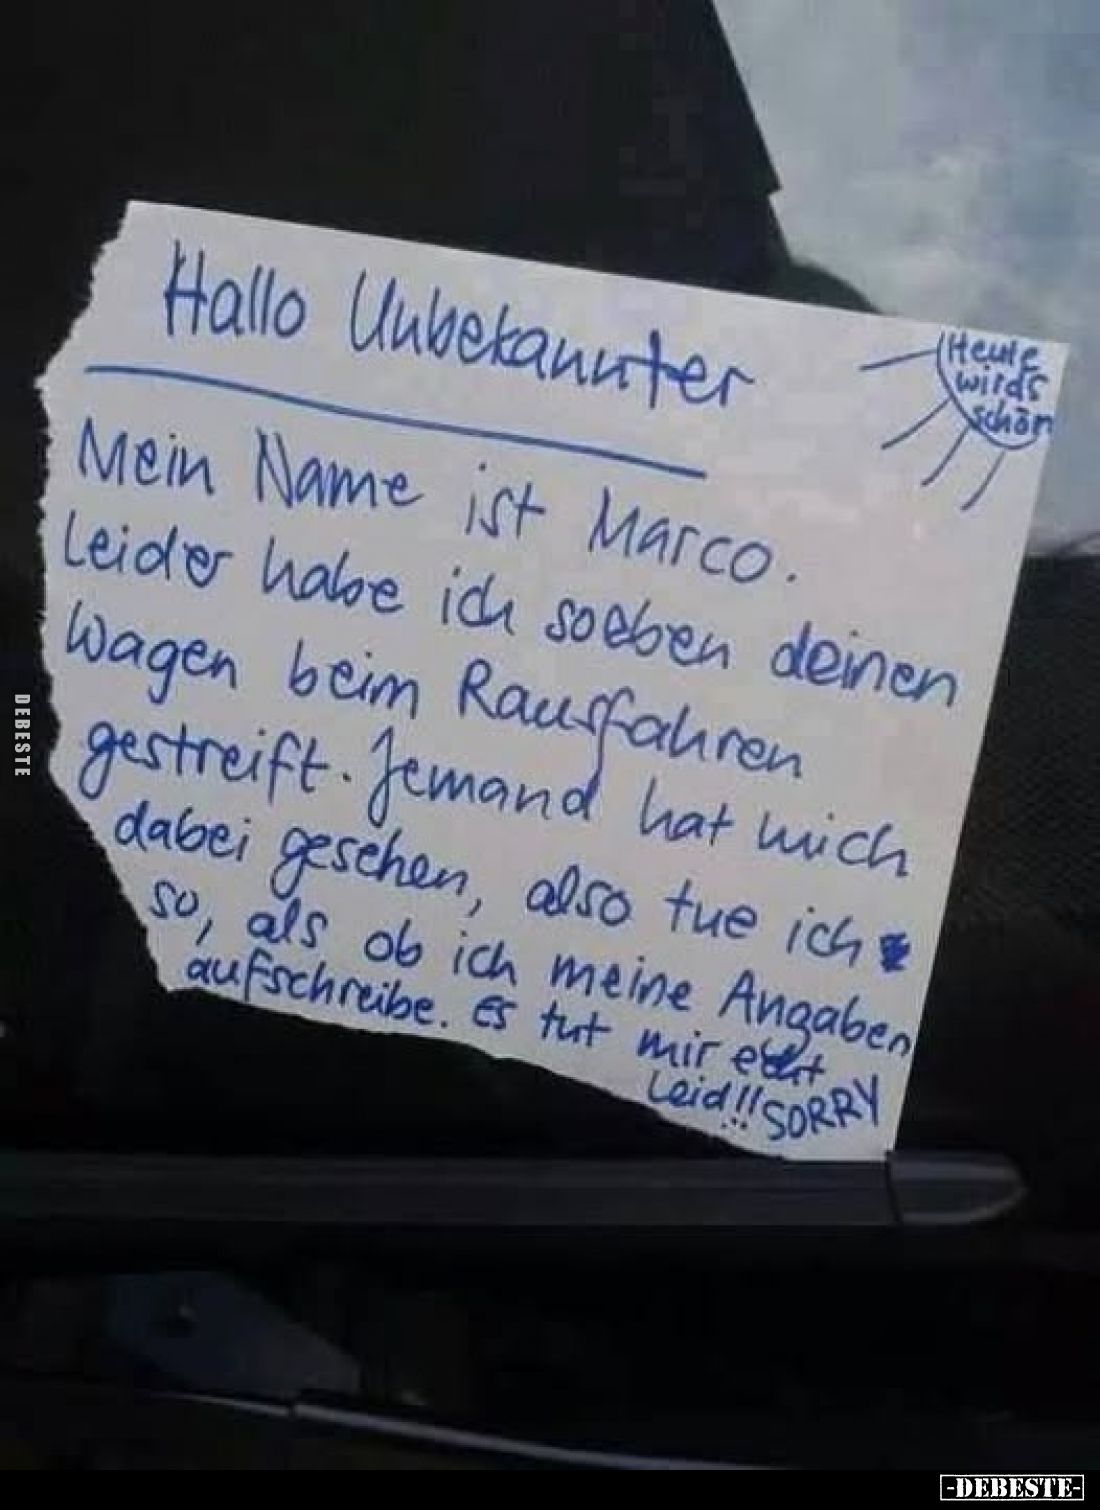 Hallo Unbekannter
Heute
wirds
schön
Mein Name ist Marco.
Leider habe ich soeben deinen
Wagen beim Rausfahren
gestreift. Jemand hat mich
dabei gesehen, also tue ich
so, als ob ich meine Angaben
aufschreibe. Es tut mir echt
Leid!! SORRY
DEBESTE
-DEBESTE-